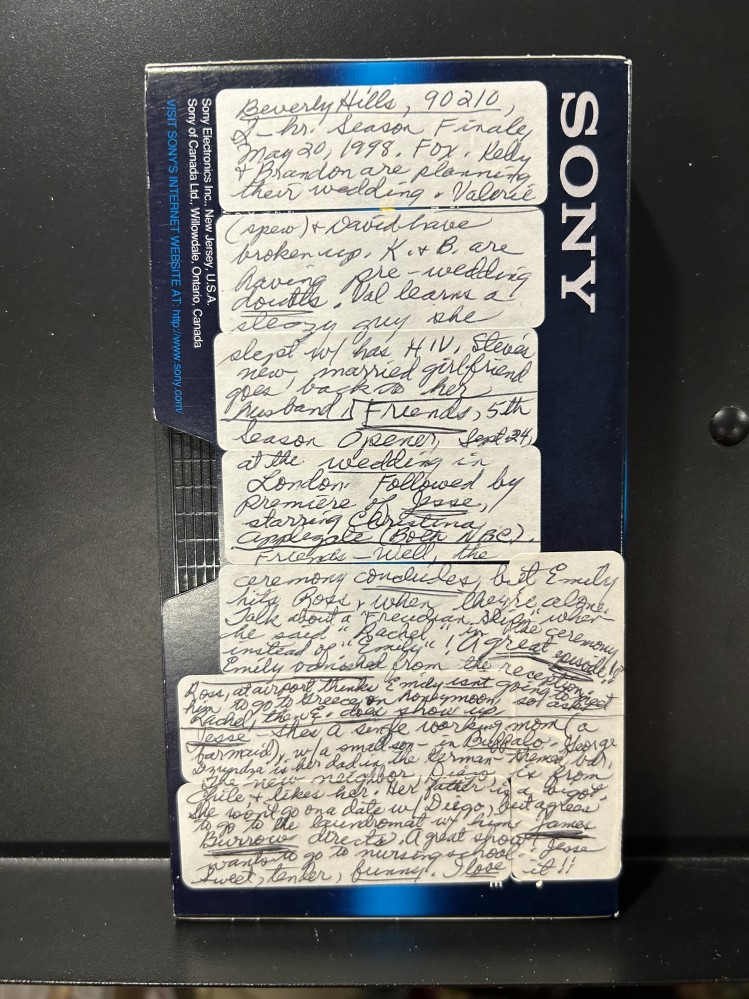 SONY
Sony Electronics Inc., New Jersey, U.S.A.
Sony of Canada Ltd., Willowdale, Ontario, Canada
VISIT SONY'S INTERNET WEBSITE AT: http://www.sony.com/
Beverly Hills, 90210,
2-hr. Season Finale,
May 20, 1998. Fox. Kelly
+ Brandon are planning
their wedding. Valerie
(spew) + David have
broken up. K. + B. are
having pre-wedding
doubts. Val learns a
sleazy guy she
slept w/ has HIV. Steve's
new, married girlfriend
goes back to her
husband. Friends, 5th
Season Opener, Sept 24,
at the wedding in
London. Followed by
Premiere of Jesse,
starring Christina
Applegate (Both NBC).
Friends - Well, the
ceremony concludes, but Emily
hits Ross, when they're alone.
Talk about a "Freudian slip" when
he said "Rachel" in the ceremony
instead of "Emily"! A great episode!!
Emily vanished from the reception.
Ross, at airport thinks Emily isn't going to meet
him to go to Greece on honeymoon, so asks
Rachel, then E. does show up.
Jesse - She's a single working mom (a
barmaid), w/ a small son - in Buffalo. George
Dzundza is her dad in the German-themed bar.
The new neighbor Diego is from
Chile + likes her. Her father is a bigot.
She won't go on a date w/ Diego, but agrees
to go to the laundromat w/ him. James
Burrow directs. A great show! Jesse
wants to go to nursing school.
Sweet, tender, funny. I love it!!